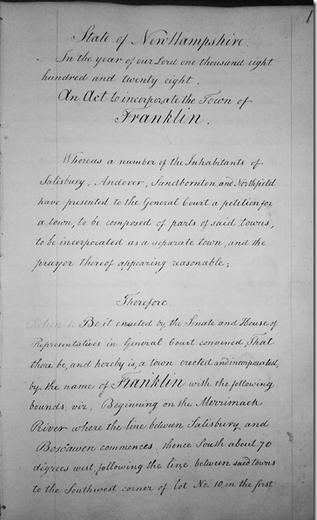 1
State of New Hampshire.
In the year of our Lord one thousand eight
hundred and twenty eight.
An Act to incorporate the Town of
Franklin.
Whereas a number of the Inhabitants of
Salisbury, Andover, Sandbornton, and Northfield
have presented to the General Court a petition for
a town, to be composed of parts of said towns,
to be incorporated as a separate town, and the
prayer thereof appearing reasonable;
Therefore
Be it enacted by the Senate and House of
Representatives in General Court convened, That
there be, and hereby is, a town erected and incorporated,
by the name of Franklin with the following
bounds, viz, Beginning on the Merrimack
River where the line between Salisbury and
Boscawen commences, thence South about 70
degrees west, following the line between said towns
to the Southwest corner of lot No. 10, in the first